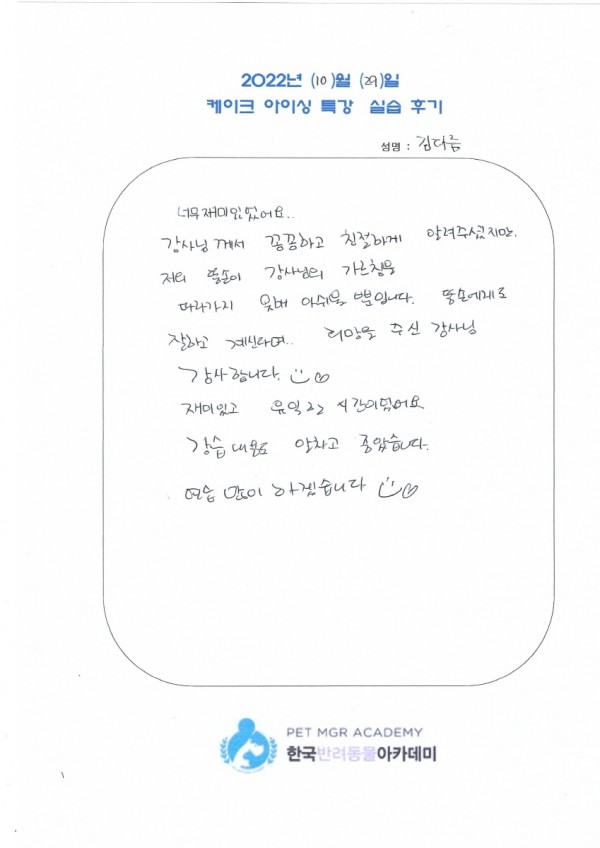 2022년 (10)월 (29)일
케이크 아이싱 특강 실습 후기
성명 : 김다름
너무 재미있었어요..
강사님께서 꼼꼼하고 친절하게 알려주셨지만,
저의 똥손이 강사님의 가르침을
따라가지 못해 아쉬울 뿐입니다. 똥손에게도
잘하고 계신다며.. 희망을 주신 강사님
감사합니다.
재미있고 유익한 시간이었어요
강습 내용도 알차고 좋았습니다.
연습 많이 하겠습니다
PET MGR ACADEMY
한국반려동물아카데미